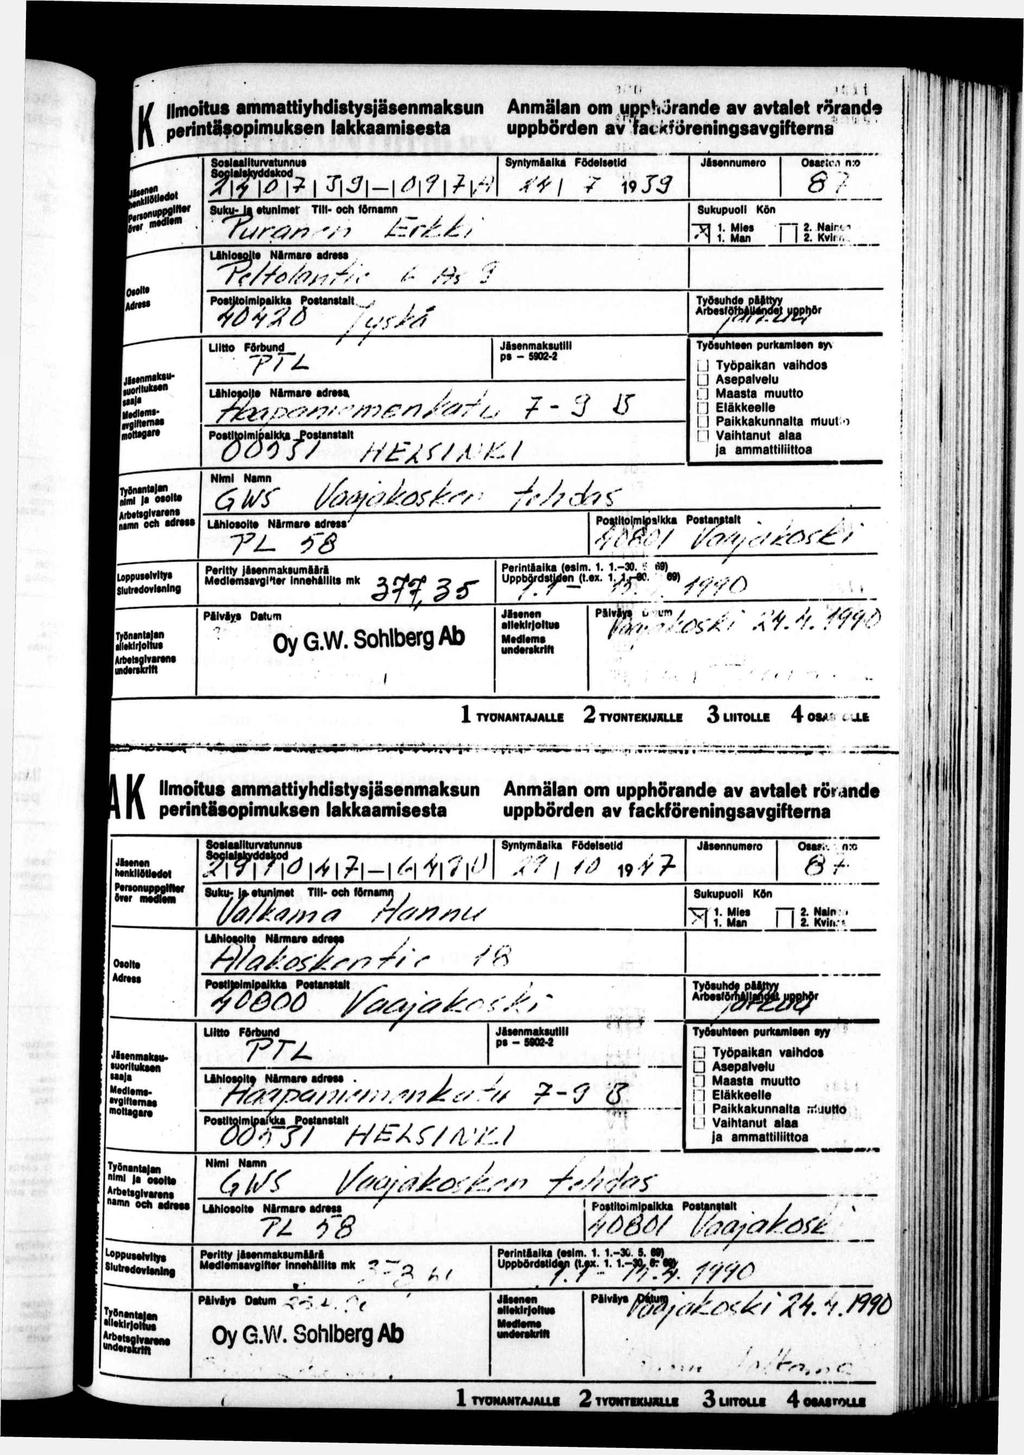 AK Ilmoitus ammattiyhdistysjäsenmaksun perintäsopimuksen lakkaamisesta
Anmälan om upphörande av avtalet rörande uppbörden av fackföreningsavgifterna
Jäsenen henkilötiedot
Personuppgifter över medlem
Sosiaaliturvatunnus
Socialskyddskod
Syntymäaika Födelsetid
19 39
Jäsennumero
Osaston n:o
87
Suku- ja etunimet Till- och förnamn
Puranen Erkki
Sukupuoli Kön
1. Mies
1. Man
2. Nainen
2. Kvinna
Osoite
Adress
Lähiosoite Närmare adress
Peltolantie 6 As 9
Postitoimipaikka Postanstalt
40420 Jyskä
Työsuhde päättyy
Arbesförhållandet upphör
jatkuu
Jäsenmaksu-
suorituksen
saaja
Medlems-
avgifternas
mottagare
Liitto Förbund
PTL
Jäsenmaksutili
ps – 5902-2
Työsuhteen purkamisen syy
Työpaikan vaihdos
Asepalvelu
Maasta muutto
Eläkkeelle
Paikkakunnalta muutto
Vaihtanut alaa
ja ammattiliittoa
Lähiosoite Närmare adress
Haapaniemenkatu 7-9 B
Postitoimipaikka Postanstalt
00531 HELSINKI
Työnantajan
nimi ja osoite
Arbetsgivarens
namn och adress
Nimi Namn
GWS Vaajakosken tehdas
Lähiosoite Närmare adress
PL 58
Postitoimipaikka Postanstalt
40801 Vaajakoski
Loppuselvitys
Slutredovisning
Peritty jäsenmaksumäärä
Medlemsavgifter innehållits mk
377,35
Perintäaika (esim. 1. 1.–30. 5. 69)
Uppbördstiden (t.ex. 1. 1.–30. 69)
1.1 – 15. 1990
Työnantajan
allekirjoitus
Arbetsgivarens
underskrift
Päiväys Datum
Oy G.W. Sohlberg Ab
Jäsenen
allekirjoitus
Medlems
underskrift
Päiväys Datum
Vaajakoski 24.4.1990
1 TYÖNANTAJALLE 2 TYÖNTEKIJÄLLE 3 LIITOLLE 4 OSASTOLLE
AK Ilmoitus ammattiyhdistysjäsenmaksun perintäsopimuksen lakkaamisesta
Anmälan om upphörande av avtalet rörande uppbörden av fackföreningsavgifterna
Jäsenen
henkilötiedot
Personuppgifter
över medlem
Sosiaaliturvatunnus
Socialskyddskod
Syntymäaika Födelsetid
29 10 19 47
Jäsennumero
Osaston n:o
87
Suku- ja etunimet Till- och förnamn
Valkama Hannu
Sukupuoli Kön
1. Mies
1. Man
2. Nainen
2. Kvinna
Osoite
Adress
Lähiosoite Närmare adress
Alakoskentie 18
Postitoimipaikka Postanstalt
40800 Vaajakoski
Työsuhde päättyy
Arbesförhållandet upphör
jatkuu
Jäsenmaksu-
suorituksen
saaja
Medlems-
avgifternas
mottagare
Liitto Förbund
PTL
Jäsenmaksutili
ps – 5902-2
Työsuhteen purkamisen syy
Työpaikan vaihdos
Asepalvelu
Maasta muutto
Eläkkeelle
Paikkakunnalta muutto
Vaihtanut alaa
ja ammattiliittoa
Lähiosoite Närmare adress
Haapaniemenkatu 7-9 B
Postitoimipaikka Postanstalt
00531 HELSINKI
Työnantajan
nimi ja osoite
Arbetsgivarens
namn och adress
Nimi Namn
GWS Vaajakosken tehdas
Lähiosoite Närmare adress
PL 58
Postitoimipaikka Postanstalt
40801 Vaajakoski
Loppuselvitys
Slutredovisning
Peritty jäsenmaksumäärä
Medlemsavgifter innehållits mk
Perintäaika (esim. 1. 1.–30. 5. 69)
Uppbördstiden (t.ex. 1. 1.–30. 6. 69)
1.1 – 15.4. 1990
Työnantajan
allekirjoitus
Arbetsgivarens
underskrift
Päiväys Datum
Oy G.W. Sohlberg Ab
Jäsenen
allekirjoitus
Medlems
underskrift
Päiväys Datum
Vaajakoski 24.4.1990
Valkama
1 TYÖNANTAJALLE 2 TYÖNTEKIJÄLLE 3 LIITOLLE 4 OSASTOLLE